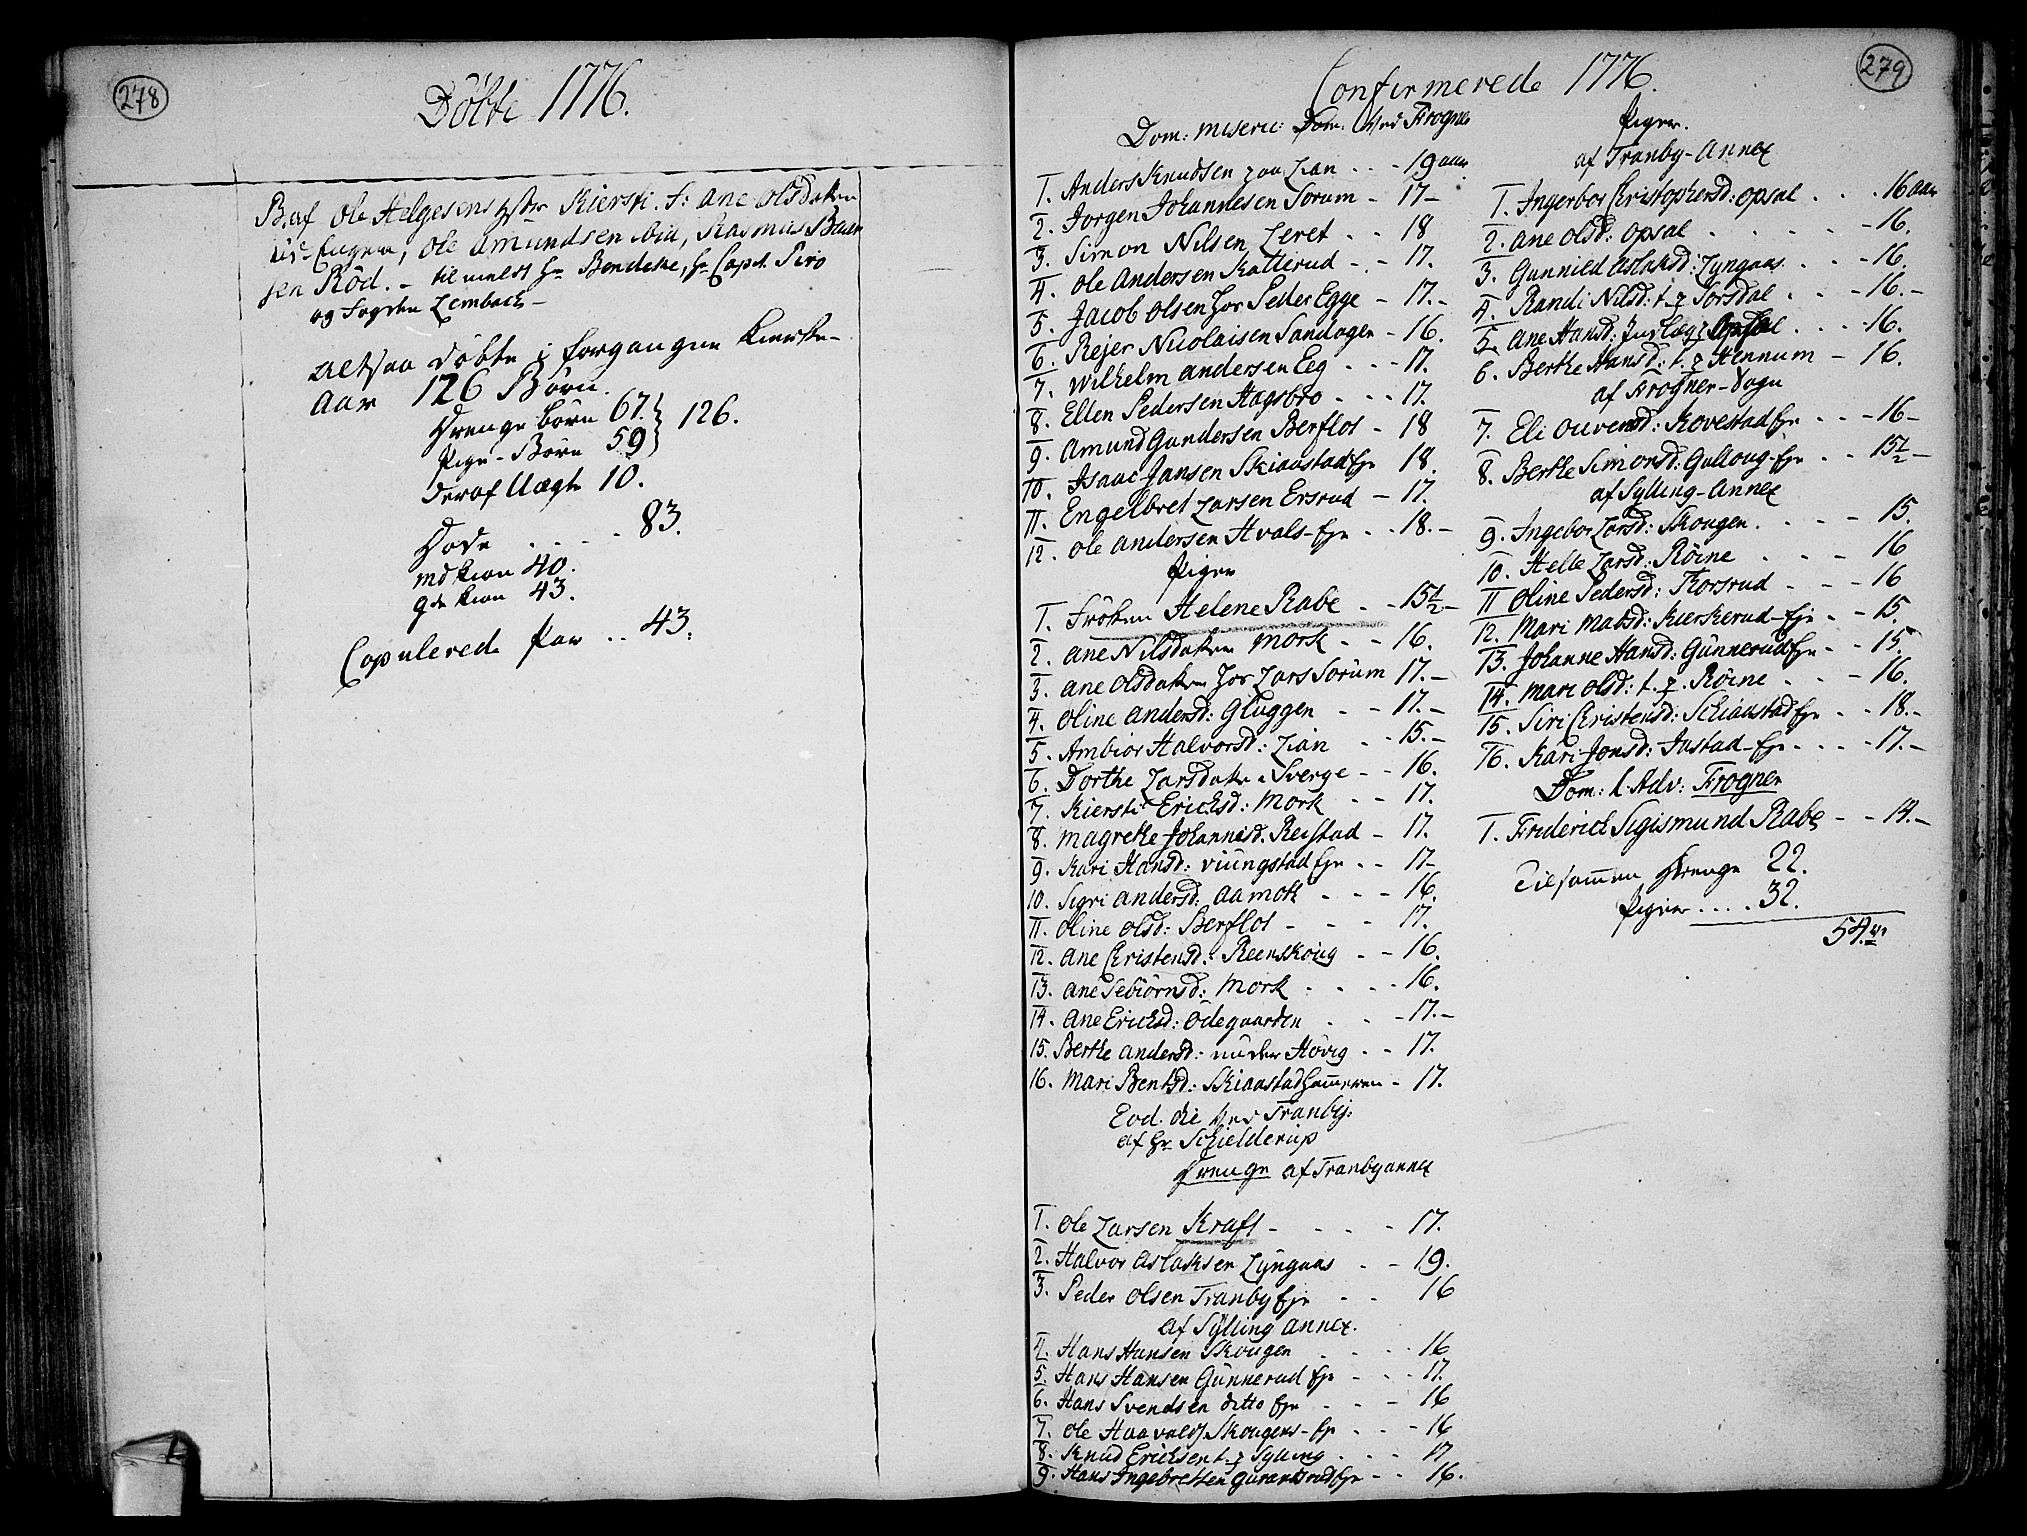 278
Döbte 1776.
B. af Ole Helgesens Kiersti. F: Ane Olsdatter
Ole Amundsen ibid, Rasmus
sen Röd. - tilmeldt Hr Bendeke, Hr Capt. Piro
og Fogden Lembach -
Altsaa döbte i forgangne Kierke-
Aar 126 Börn.
Drenge börn 67. } 126.
Pige-Börn 59
Deraf Uægte 10.
Döde . . . . . 83.
md kiön 40.
qde kiön 43.
Copulerede Par .. 43.
279
Confirmerede 1776.
Dom: Miseric: Dom. Ved Frogner
1. Anders Knudsen paa Lian . . - 19 aar
2. Jorgen Johannesen Sorum - 17 -
3. Simon Nilsen Leret . . - 18
4. Ole Andersen Katterud - . - 17.
5. Jacob Olsen hos Peder Egge - 17. -
6. Rejer Nicolaisen Sandagen - 16.
7. Wilhelm Andersen Eeg . . - 17.
8. Ellen Pedersen Hagsbro . - - 17.
9. Amund Gundersen Berflot - 18
10. Isaac Jansen Skiaastadeje 18.
11. Engelbret Larsen Ersrud - 17.
12. Ole Andersen Hvals-Eje . . - 18. -
Piger
1. Fröken Helene Rabe . - 15 1/2 -
2. Ane Nilsdatter Mork . - - 16.
3. Ane Olsdatter hos Lars Sorum 17. -
4. Oline Andersd: Gluggen . - - 17. -
5. Ambior Halvorsd: Lian . . - 15. -
6. Dorthe Larsdatter Sverge - - 16.
7. Kiersti Ericksd: Mork . . - 17.
8. Magrethe Johannesd. Reistad - 17.
9. Kari Hansd: Viungstad Eje . - 17 -
10. Sigri Andersd: Aamodt . - - - 16.
11. Oline Olsd: Berflot - - - 17.
12. Ane Christensd: Reenskoug . - - 16.
13. Ane Sebiörnsd: Mork . . . - - 16.
14. Ane Ericksd: Ödegaarden . . - 17. -
15. Berthe Andersd: under Hövig . - 17.
16. Mari Bentsd: Skiaastadhammeren - 17.
Eod. die ved Tranby.
af Hr Schielderup
Drenge af Tranby annex
1. Ole Larsen Kraft - - - - 17.
2. Halvor Aslaksen Lyngaas . . - 19.
3. Peder Olsen Tranby Eje . . - 16
af Sylling Annex.
4. Hans Hansen Skougen . . . . 16
5. Hans Hansen Gunnerud Eje - . . - 17.
6. Hans Svendsen ditto Eje . . - 16
7. Ole Haavalds. Skougens-Eje . . . - 16
8. Knud Ericksen t. p. Sylling . . . . 17
9. Hans Ingebretsen Eje - - 16.
Piger.
af Tranby-Annex
1. Ingebor Christophersd: Opsal . . . 16 aar
2. Ane Olsd: Opsal . . . . . - 16.
3. Gunnild Aslaksd: Lyngaas . . . - 16.
4. Randi Nilsd: t. p. Sorsdal . . . - 16. -
5. Ane Hansd: Indlæg: Opsal . . . - 16.
6. Berthe Hansd: t. p. Hennum - 16.
af Frogner-Sogn
7. Eli Ouvensd: Kovestad Eje . . - 16 -
8. Berthe Simonsd: Gulloug-Eje . . - 15 1/2 -
af Sylling-Annex
9. Ingebor Larsd: Skougen . . . - 15.
10. Helle Larsd: Röine . . . - 16
11. Oline Pedersd: Korsrud . . - 16
12. Mari Madsd: Kierkerud-Eje . - - 15.
13. Johanne Hansd: Gunnerud Eje - . - 15.
14. Mari Olsd: t. p. Röine . . . - 16.
15. Siri Christensd: Schiaastad Eje . - 18. -
16. Kari Jonsd: Jostad-Eje . . . . - 17. -
Dom: 1. Adv: Frogner
1. Friderich Sigismund Rabe - - 14. -
Tilsammen Drenge 22.
Piger . . . . 32.
54.